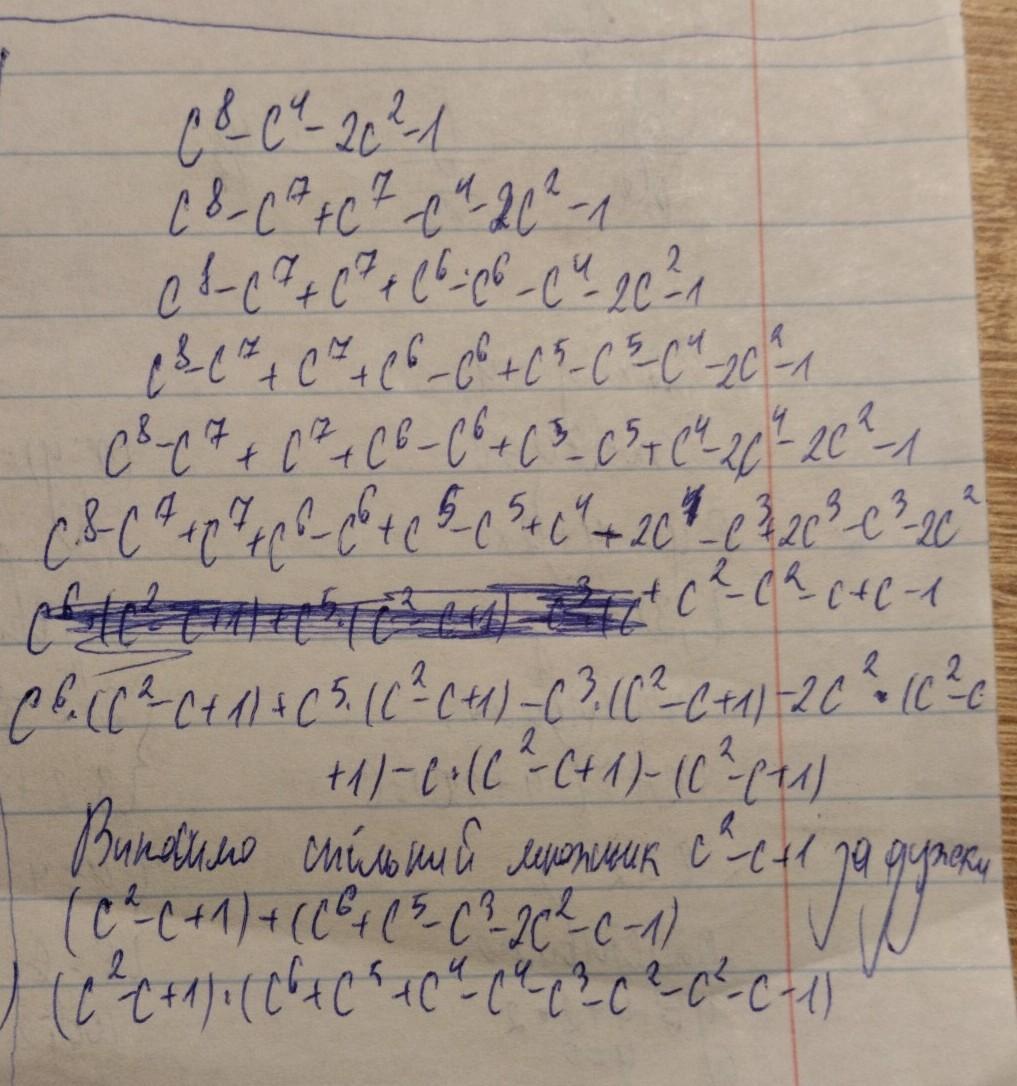 c⁸-c⁴-2c²-1
c⁸-c⁷+c⁷-c⁴-2c²-1
c⁸-c⁷+c⁷+c⁶-c⁶-c⁴-2c²-1
c⁸-c⁷+c⁷+c⁶-c⁶+c⁵-c⁵-c⁴-2c²-1
c⁸-c⁷+c⁷+c⁶-c⁶+c⁵-c⁵+c⁴-2c⁴-2c²-1
c⁸-c⁷+c⁷+c⁶-c⁶+c⁵-c⁵+c⁴+2c⁴-c³+2c³-c³-2c²
+c²-c²-c+c-1
c⁶·(c²-c+1)+c⁵·(c²-c+1)-c³·(c²-c+1)-2c²·(c²-c
+1)-c·(c²-c+1)-(c²-c+1)
Виносимо спільний множник c²-c+1 за дужки
(c²-c+1)+(c⁶+c⁵-c³-2c²-c-1)
(c²-c+1)·(c⁶+c⁵+c⁴-c⁴-c³-c²-c²-c-1)